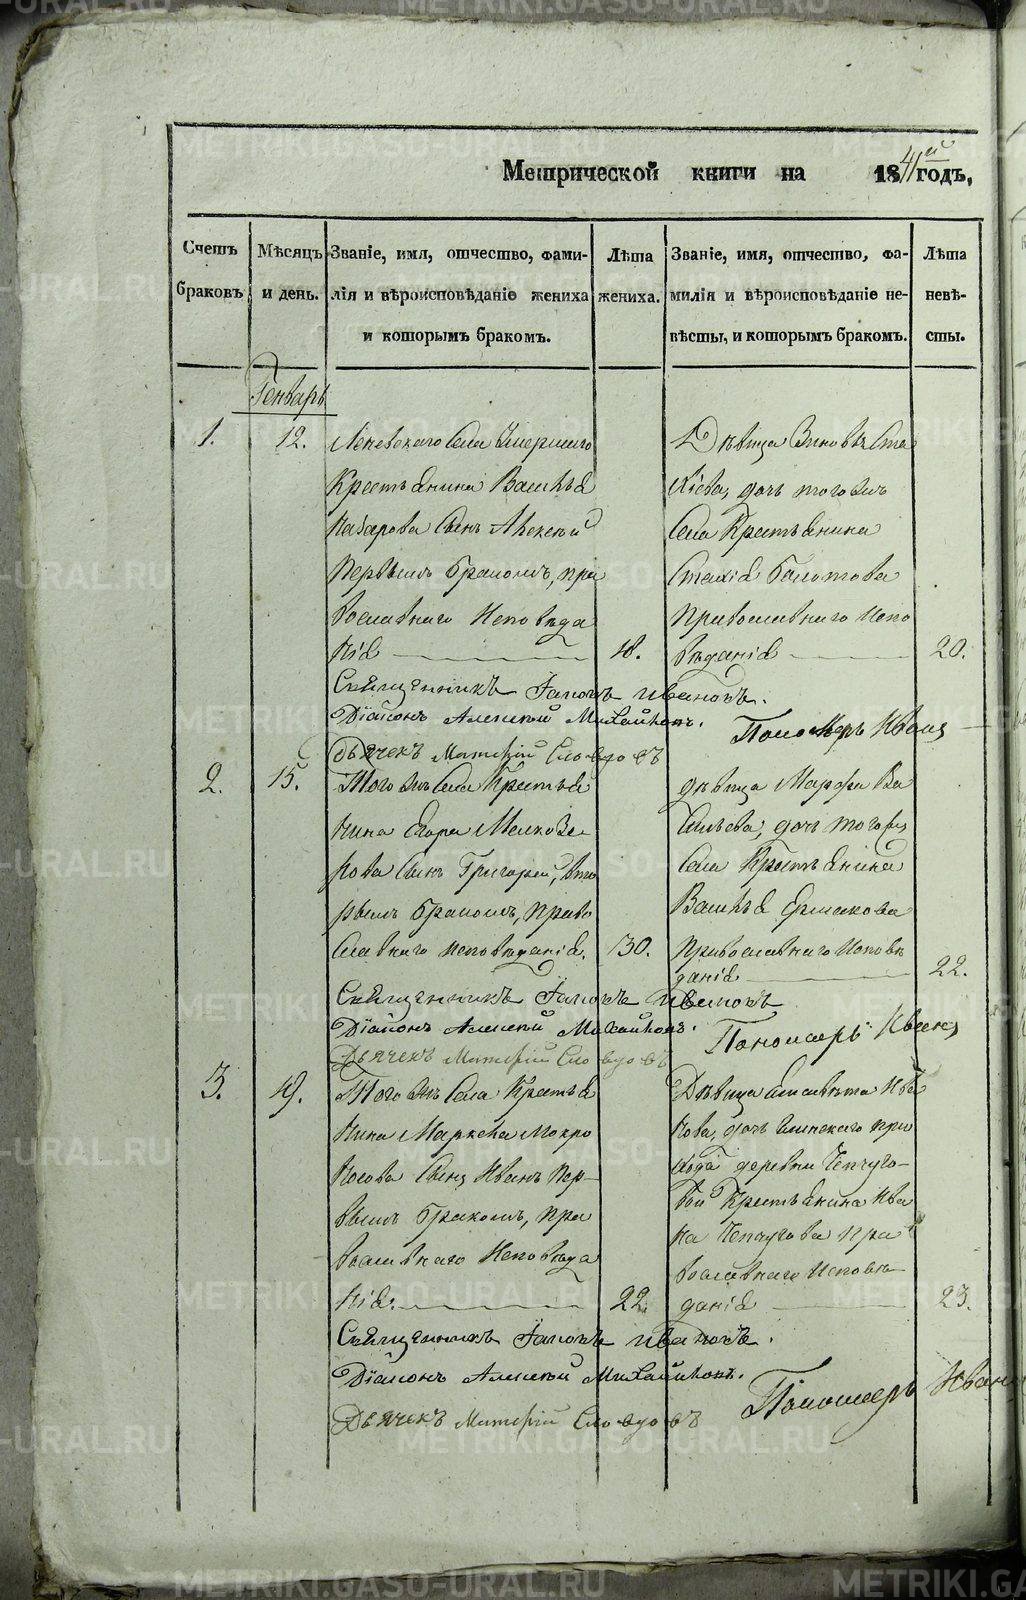 Метрической книги на 1841й годъ,
Счетъ браковъ
Мѣсяцъ и день.
Званіе, имя, отчество, фами-
лія и вѣроисповѣданіе жениха
и которымъ бракомъ.
Лѣта
жениха.
Званіе, имя, отчество, фа-
милія и вѣроисповѣданіе не-
вѣсты, и которымъ бракомъ.
Лѣта
невѣ-
сты.
Генварь
1.
12.
Леневскаго Села Умершаго
Крестьянина Василья
Назарова Сынъ Алексѣй
Первымъ бракомъ, пра
вославнаго Исповѣда
нія
18.
Дѣвица Зиновья Ста
хіева, дочь тогожъ
Села Крестьянина
Стахія Болотова
Православнаго Испо
вѣданія
20.
Священникъ Іаковъ Ивановъ.
Діаконъ Алексѣй Михайловъ.
Дьячекъ Матфій Словцовъ
Пономарь Иванъ
2.
15.
Тогожъ Села Крестья
нина Егора Мелкозе
рова Сынъ Григорій, вто
рымъ бракомъ, право
славнаго исповѣданія.
30.
дѣвица Марфа Ва
сильева, дочь тогожъ
Села Крестьянина
Василья Ермакова
Православнаго Исповѣ
данія
22.
Священникъ Іаковъ Ивановъ
Діаконъ Алексѣй Михайловъ.
Дьячекъ Матфій Словцовъ
Пономарь Иванъ
3.
19.
Тогожъ Села Крестья
нина Маркела Мокро
носова Сынъ Иванъ Пер-
вымъ бракомъ, пра
вославнаго Исповѣда
нія.
22.
Дѣвица Елисавета Ива
нова, дочь Глинскаго при
хода деревни Чепчуго-
вой Крестьянина Ива
на Чепчугова пра
вославнаго Исповѣ
данія
23.
Священникъ Іаковъ Ивановъ.
Діаконъ Алексѣй Михайловъ.
Дьячекъ Матфій Словцовъ
Пономарь Иванъ
METRIKI.GASO-URAL.RU